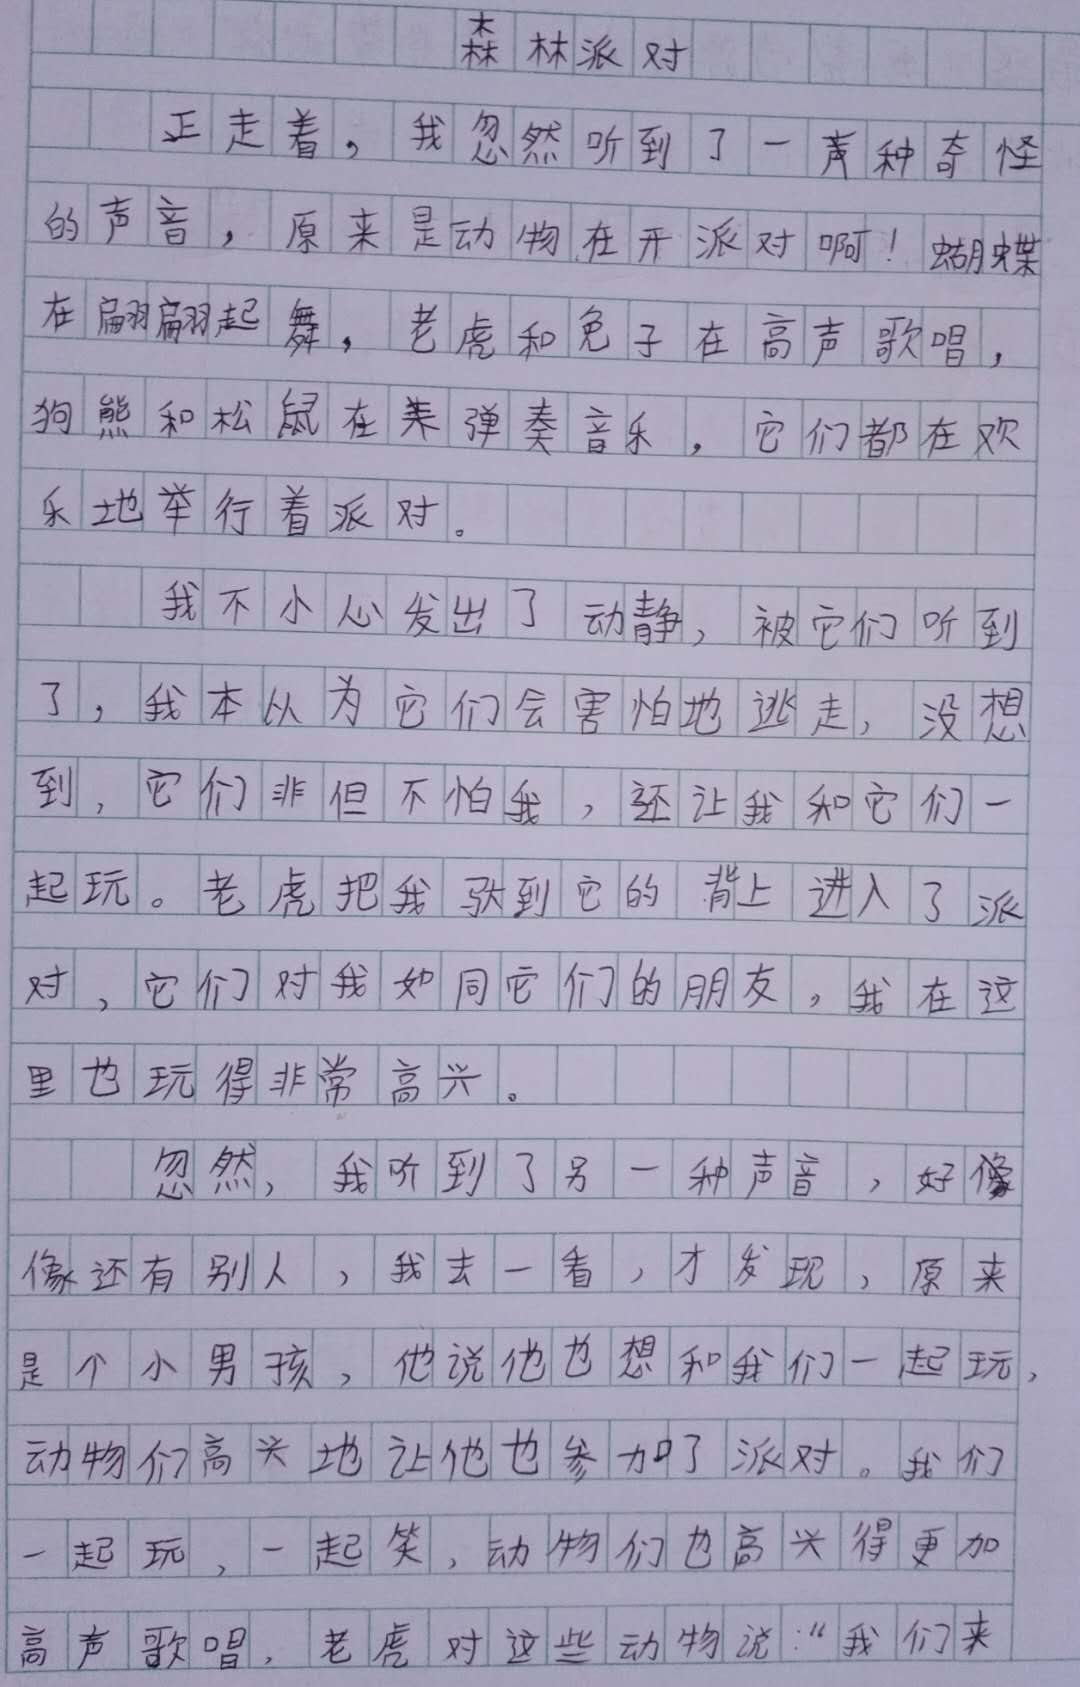 森林派对
正走着，我忽然听到了一声种奇怪
的声音，原来是动物在开派对啊！蝴蝶
在翩翩起舞，老虎和兔子在高声歌唱，
狗熊和松鼠在弹奏音乐，它们都在欢
乐地举行着派对。
我不小心发出了动静，被它们听到
了，我本以为它们会害怕地逃走，没想
到，它们非但不怕我，还让我和它们一
起玩。老虎把我驮到它的背上进入了派
对，它们对我如同它们的朋友，我在这
里也玩得非常高兴。
忽然，我听到了另一种声音，好像
像还有别人，我去一看，才发现，原来
是个小男孩，他说他也想和我们一起玩，
动物们高兴地让他也参加了派对。我们
一起玩，一起笑，动物们也高兴得更加
高声歌唱，老虎对这些动物说：“我们来